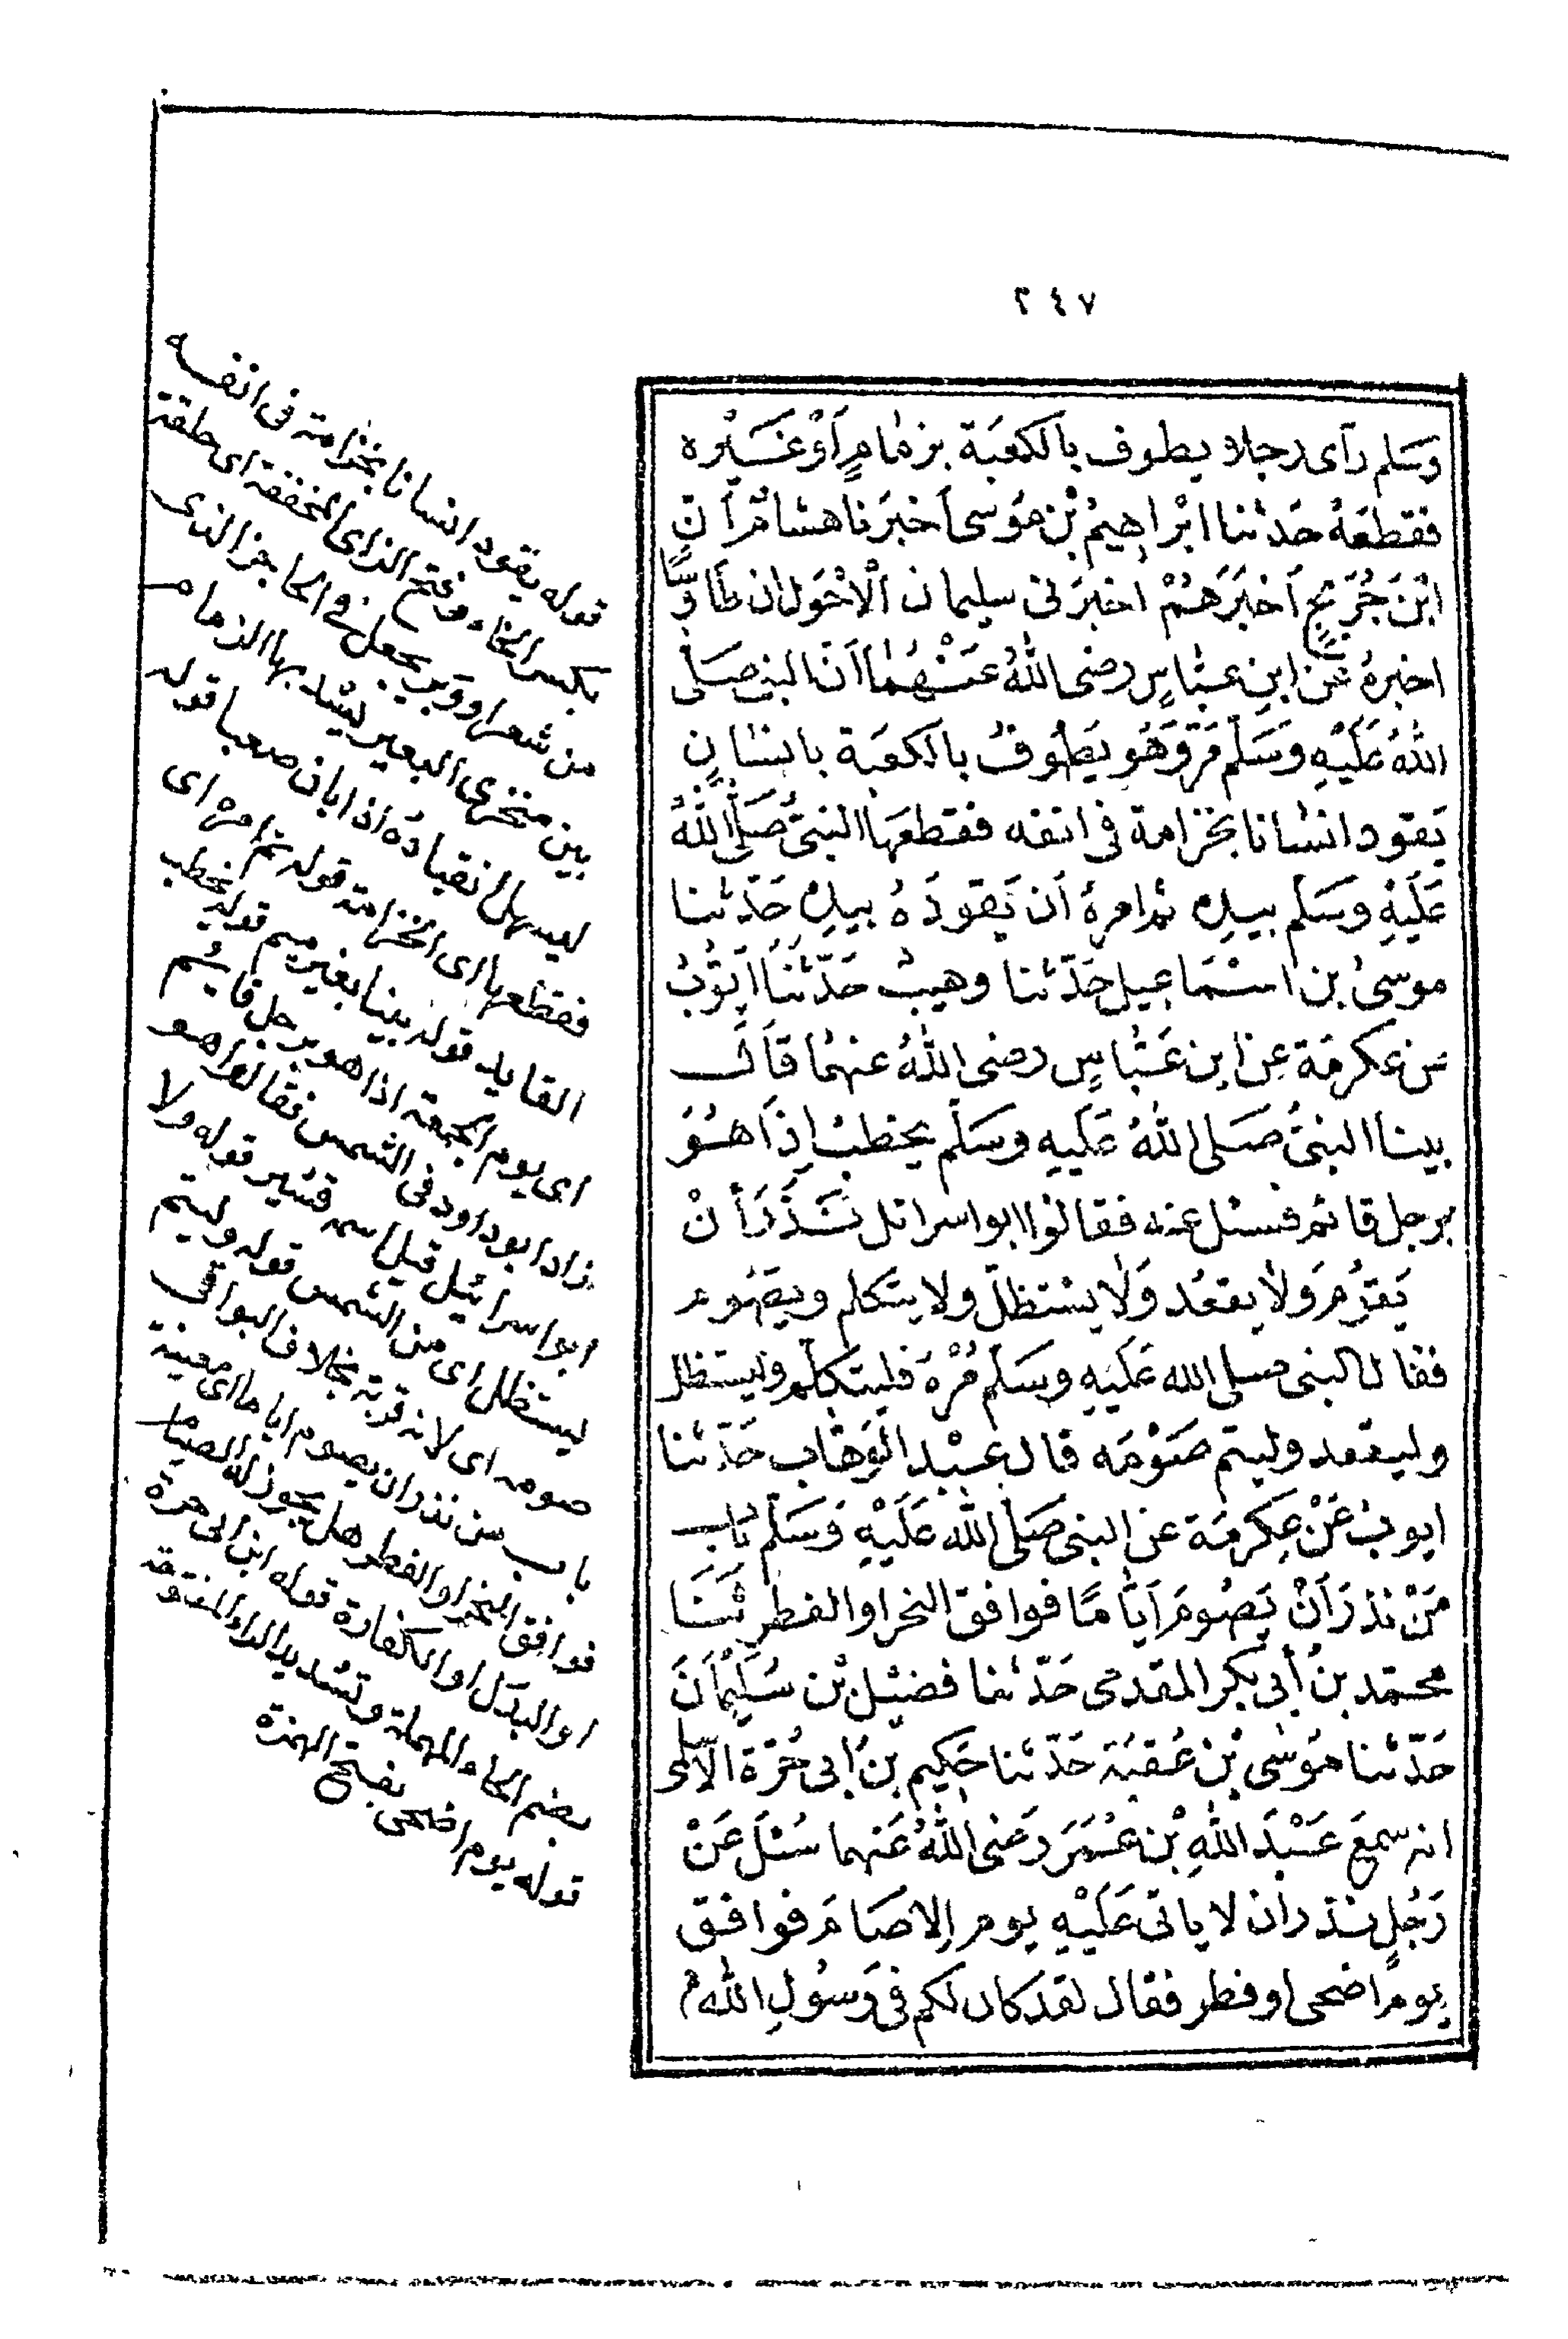 ٢٤٧
وَسَلم رَآى رجلا يطوف بالكعبَة بزمامٍ اَوْ غَيْره
فقطعَهُ حَدثنا ابْراهِيمُ بْن مُوَسى اَخبَرنا هشامٌ اَنّ
ابْنَ جُرَيجٍ اَخبَرَهُمْ اخبَرَنى سليمان اْلاحْوَل ان طَاوسًا
اخبرهُ عَنِ ابنِ عبّاسٍ رضى اللهُ عَنْهُما اَنّ النبى صَلى
اللهُ عَلَيْهِ وسَلّم مَرّ وَهُو يَطُوفُ بالكعبَة بانسَانٍ
يَقود انسَانا بخزامة فى انفه فقطعَها النبىُّ صَلّى اللهُ
عَلَيْهِ وَسَلّم بيدِه ثم امرهُ اَن يَقودَهُ بيدِه حَدّثنا
موسىٰ بن اسْمَاعِيل حَدّثنا وهيبٌ حَدّثَنا اَيّوُبُ
عَن عكرمَة عن ابن عَبّاسٍ رضى اللهُ عنهمُا قاَلَ
بينا النبىُّ صَلى اللهُ عَلَيهِ وسَلّم يخطبُ اِذَا هُوَ
برجل قائم فسئل عنه فقالوا ابو اسرائل نَذَرَ أنْ
يَقوُمَ وَلا يقعُد وَلَا يسْتظلّ ولا يتكلم ويصُوم
فقال النبى صلى الله عَلَيهِ وسَلّم مُرْهُ فليتكلّم وليستظل
وليقعد وليتم صَوْمَه قال عبْد الوَهّاب حَدّثنا
ايوبُ عَنْ عِكرمَة عن النبى صَلى الله عَلَيْهِ وَسَلّم بَاب
مَنْ نذرَ اَنْ يَصُومَ اَيّامًا فوافق النحر او الفطر ثَنَا
محمّد بنُ أبى بكر المقدمى حَدّثنا فضيْل بْن سُلَيْمانَ
حَدّثنا مُوسٰى بْن عُقبَة حَدّثنا حَكِيم بنُ اَبى حُرّة الاَسْلمى
انه سمِعَ عَبْدَ اللهِ بْن عُمَرَ رَضى اللهُ عَنهما سُئلَ عَنْ
رَجُلٍ نذر ان لا ياتى عَلَيْهِ يوم اِلا صَامَ فوافق
يومًا ضحى او فطر فقال لقد كان لكم فى رَسُولِ اللهِ
قوله يقود انسانا بخزامة فى انفه
بكسر الخاء وفتح الزاى المخففة اى حلقة
من شعر او وبر يجعل فى الحاجز الذى
بين منخرى البعير ليشد بها الزمام
ليسهل انقياده اذا بان صعبا قوله
فقطعها اى الخزامة قوله ثم امره اى
القايد قوله بينا بغير ميم قوله يخطب
اى يوم الجمعة اذا هو برجل قائم
زاد ابو داود فى الشمس فقالوا هو
ابو اسرائيل قيل اسمه قشير قوله ولا
ليستظل اى من الشمس قوله وليتم
صومه اى لانه قربة بخلاف البواقى
باب من نذر ان يصوم اياما اى معينة
فوافق النحر او الفطر هل يجوز له الصيام
او البدل او الكفارة قوله ابن ابى حرة
بضم الحاء المهملة وتشديد الراء المفتوحة
قوله يوم اضحى بفتح الهمزة